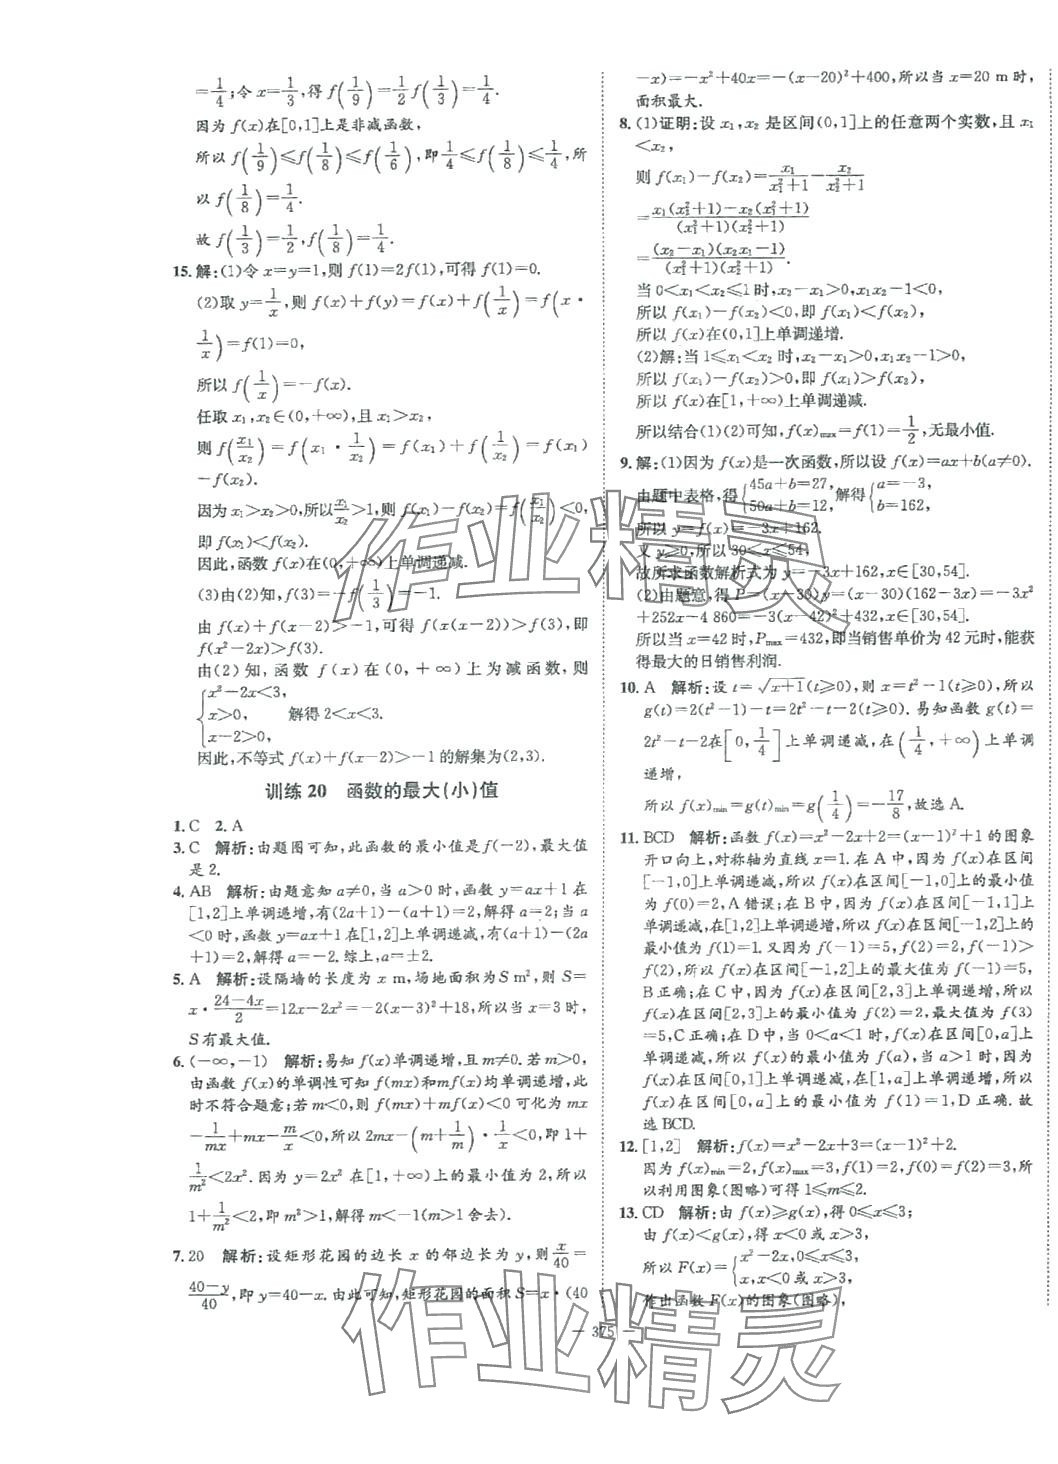 =1/4;令 x=1/3,得 f(1/9)=1/2 f(1/3)=1/4.
因为 f(x)在[0,1]上是非减函数,
所以 f(1/9)≤f(1/8)≤f(1/6),即1/4≤f(1/8)≤1/4,所
以 f(1/8)=1/4.
故 f(1/3)=1/2,f(1/8)=1/4.
15.解:(1)令 x=y=1,则 f(1)=2f(1),可得 f(1)=0.
(2)取 y=1/x,则 f(x)+f(y)=f(x)+f(1/x)=f(x·
1/x)=f(1)=0,
所以 f(1/x)=-f(x).
任取 x₁,x₂∈(0,+∞),且 x₁>x₂,
则 f(x₁/x₂)=f(x₁·1/x₂)=f(x₁)+f(1/x₂)=f(x₁)
-f(x₂).
因为 x₁>x₂>0,所以x₁/x₂>1,则 f(x₁)-f(x₂)=f(x₁/x₂)<0,
即 f(x₁)<f(x₂).
因此,函数 f(x)在(0,+∞)上单调递减.
(3)由(2)知,f(3)=-f(1/3)=-1.
由 f(x)+f(x-2)>-1,可得 f(x(x-2))>f(3),即
f(x²-2x)>f(3).
由(2)知,函数 f(x)在(0,+∞)上为减函数,则
{x²-2x<3,
x>0, 解得 2<x<3.
x-2>0;
因此,不等式 f(x)+f(x-2)>-1 的解集为(2,3).
训练 20 函数的最大(小)值
1.C 2.A
3.C 解析:由题图可知,此函数的最小值是f(-2),最大值
是 2.
4.AB 解析:由题意知 a≠0,当 a>0 时,函数 y=ax+1 在
[1,2]上单调递增,有(2a+1)-(a+1)=2,解得 a=2;当 a
<0 时,函数 y=ax+1在[1,2]上单调递减,有(a+1)-(2a
+1)=2,解得 a=-2.综上,a=±2.
5.A 解析:设隔墙的长度为 x m,场地面积为 S m²,则 S=
x·(24-4x)/2=12x-2x²=-2(x-3)²+18,所以当 x=3 时,
S 有最大值.
6.(-∞,-1) 解析:易知 f(x)单调递增,且 m≠0.若 m>0,
由函数 f(x)的单调性可知 f(mx)和mf(x)均单调递增,此
时不符合题意;若 m<0,则 f(mx)+mf(x)<0 可化为 mx
-1/mx+mx-m/x<0,所以 2mx-(m+1/m)·1/x<0,即 1+
1/m²<2x².因为 y=2x² 在[1,+∞)上的最小值为 2,所以
1+1/m²<2,即 m²>1,解得 m<-1(m>1 舍去).
7.20 解析:设矩形花园的边长 x 的邻边长为 y,则x/40=
(40-y)/40,即 y=40-x.由此可知,矩形花园的面积 S=x·(40
-x)=-x²+40x=-(x-20)²+400,所以当 x=20 m 时,
面积最大.
8.(1)证明:设 x₁,x₂ 是区间(0,1]上的任意两个实数,且 x₁
<x₂,
则 f(x₁)-f(x₂)=x₁/(x₁²+1)-x₂/(x₂²+1)
=(x₁(x₂²+1)-x₂(x₁²+1))/((x₁²+1)(x₂²+1))
=((x₂-x₁)(x₂x₁-1))/((x₁²+1)(x₂²+1)).
当 0<x₁<x₂≤1 时,x₂-x₁>0,x₁x₂-1<0,
所以 f(x₁)-f(x₂)<0,即 f(x₁)<f(x₂),
所以 f(x)在(0,1]上单调递增.
(2)解:当 1≤x₁<x₂ 时,x₂-x₁>0,x₁x₂-1>0,
所以 f(x₁)-f(x₂)>0,即 f(x₁)>f(x₂),
所以 f(x)在[1,+∞)上单调递减.
所以结合(1)(2)可知,f(x)max=f(1)=1/2,无最小值.
9.解:(1)因为 f(x)是一次函数,所以设 f(x)=ax+b(a≠0).
由题中表格,得{45a+b=27,50a+b=12,解得{a=-3,b=162,
所以 y=f(x)=-3x+162.
又 y≥0,所以 30≤x≤54,
故所求函数解析式为 y=-3x+162,x∈[30,54].
(2)由题意,得 P=(x-30)y=(x-30)(162-3x)=-3x²
+252x-4 860=-3(x-42)²+432,x∈[30,54].
所以当 x=42 时,Pmax=432,即当销售单价为 42 元时,能获
得最大的日销售利润.
10.A 解析:设 t=√(x+1)(t≥0),则 x=t²-1(t≥0),所以
g(t)=2(t²-1)-t=2t²-t-2(t≥0).易知函数 g(t)=
2t²-t-2在[0,1/4]上单调递减,在(1/4,+∞)上单调
递增,
所以 f(x)min=g(t)min=g(1/4)=-17/8,故选 A.
11.BCD 解析:函数 f(x)=x²-2x+2=(x-1)²+1 的图象
开口向上,对称轴为直线 x=1.在 A 中,因为 f(x)在区间
[-1,0]上单调递减,所以 f(x)在区间[-1,0]上的最小值
为 f(0)=2,A 错误;在 B 中,因为 f(x)在区间[-1,1]上
单调递减,在[1,2]上单调递增,所以 f(x)在区间[-1,2]上的
最小值为 f(1)=1.又因为 f(-1)=5,f(2)=2,f(-1)>
f(2),所以 f(x)在区间[-1,2]上的最大值为 f(-1)=5,
B 正确;在 C 中,因为 f(x)在区间[2,3]上单调递增,所以
f(x)在区间[2,3]上的最小值为 f(2)=2,最大值为 f(3)
=5,C 正确;在 D 中,当 0<a<1 时,f(x)在区间[0,a]上
单调递减,所以 f(x)的最小值大于 1,当 a>1 时,因为
f(x)在区间[0,1]上单调递减,在[1,a]上单调递增,所以
f(x)在区间[0,a]上的最小值为 f(1)=1,D 正确.故
选 BCD.
12.[1,2] 解析:f(x)=x²-2x+3=(x-1)²+2.
因为 f(x)min=2,f(x)max=3,f(1)=2,f(0)=f(2)=3,所
以利用图象(图略)可得 1≤m≤2.
13.CD 解析:由 f(x)≥g(x),得 0≤x≤3;
由 f(x)<g(x),得 x<0 或 x>3,
所以 F(x)={x²-2x,0≤x≤3,x,x<0 或 x>3,
作出函数 F(x)的图象(图略),
— 375 —
作业精灵
作业精灵